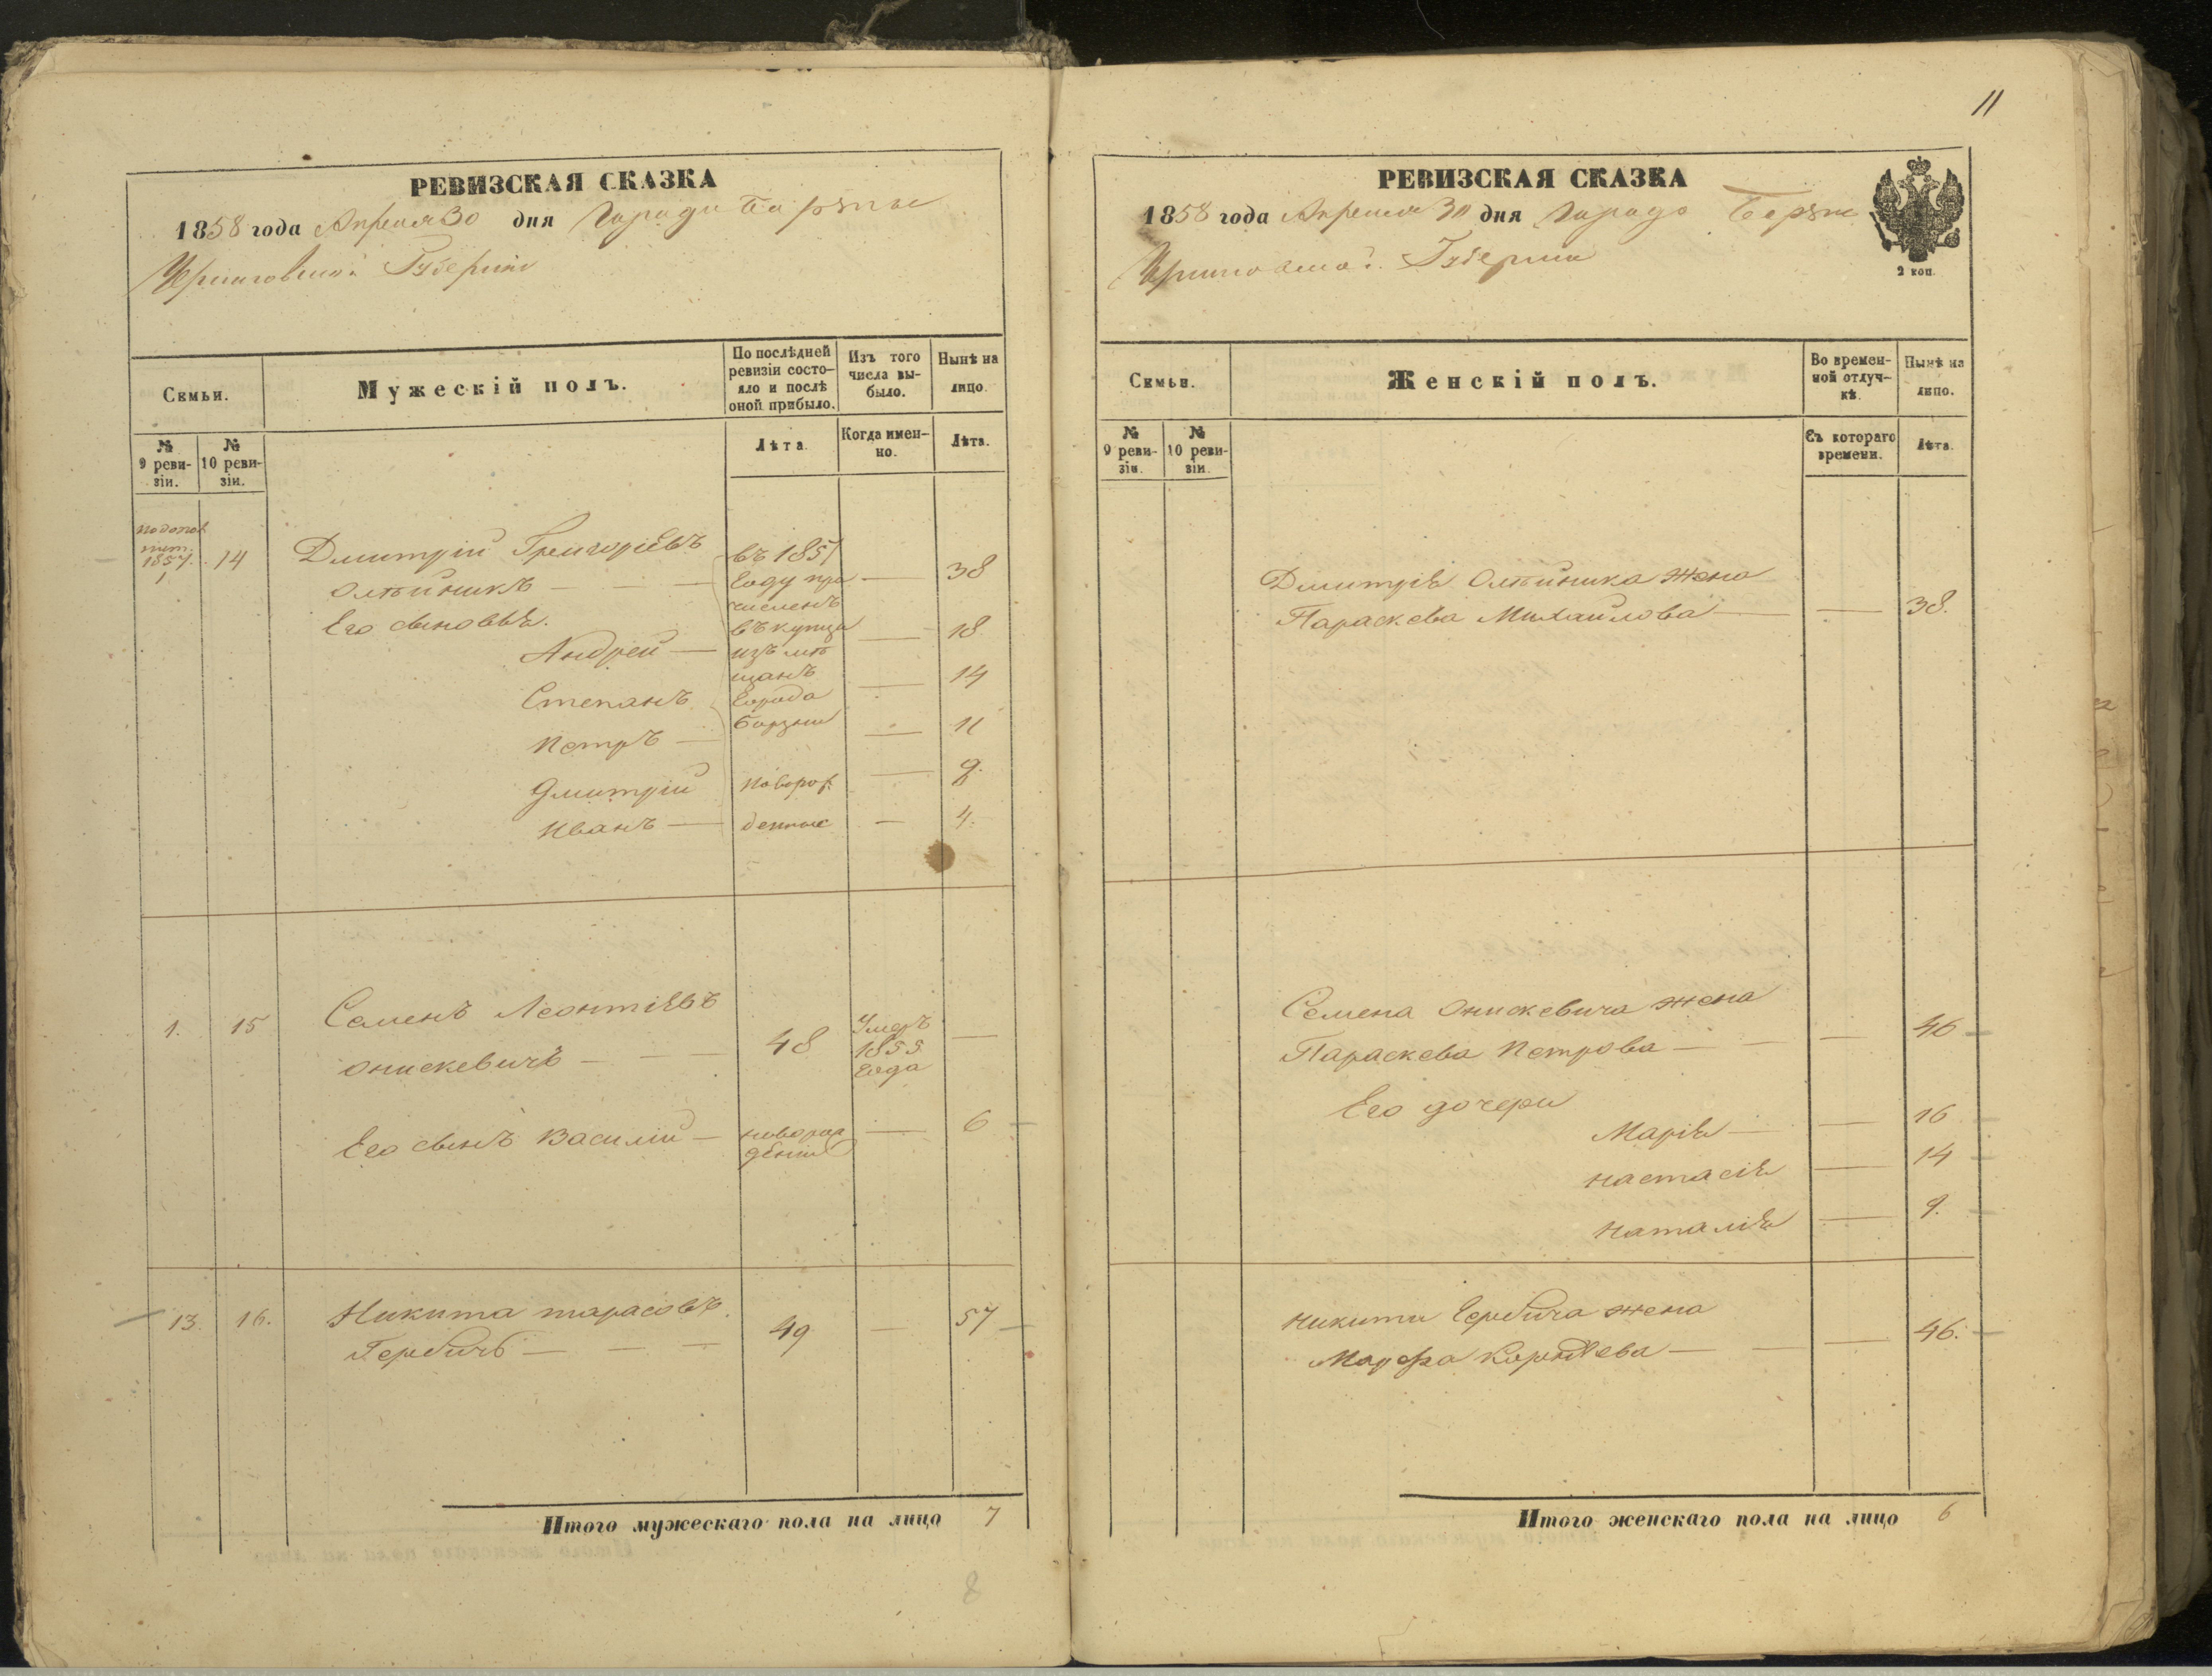 РЕВИЗСКАЯ СКАЗКА
1858 года Апреля 30 дня Города Борзны
Черниговской Губернии
Семьи.
Мужескій полъ.
По послѣдней ревизіи состояло и послѣ оной прибыло.
Изъ того числа выбыло.
Нынѣ на лицо.
№ 9 ревизіи.
№ 10 ревизіи.
Лѣта.
Когда именно.
Лѣта.
1857. 1 14 Дмитрій Григоріевъ
Олѣйникъ — — — 38
въ 1857
году при
численъ
въ купцы
изъ мѣ
щанъ
города
Борзны
Его сыновья.
Андрей — — 18
Степанъ — 14
Петръ — — 11
Дмитрій — 9.
Иванъ — — 4.
новорож
денные
1. 15 Семенъ Леонтіевъ
Онискевичъ — — — 48 Умеръ 1855 года —
Его сынъ Василій — новорож денный — 6 —
13. 16. Никита Тарасовъ
Гербичъ — — — 49 — 57 —
Итого мужескаго пола на лицо 7
8
11
РЕВИЗСКАЯ СКАЗКА
1858 года Апреля 30 дня Города Борзны
Черниговской Губернии
2 коп.
Семьи.
Женскій полъ.
Во временной отлучкѣ.
Нынѣ на лицо.
№ 9 ревизіи.
№ 10 ревизіи.
Съ котораго времени.
Лѣта.
Дмитрія Олѣйника жена
Параскева Михайлова — — 38.
Семена Онискевича жена
Параскева Петрова — — — 46 —
Его дочери
Марія — — 16
Настасія — 14
Наталія — 9.
Никиты Гербича жена
Марфа — — — 46. —
Итого женскаго пола на лицо 6